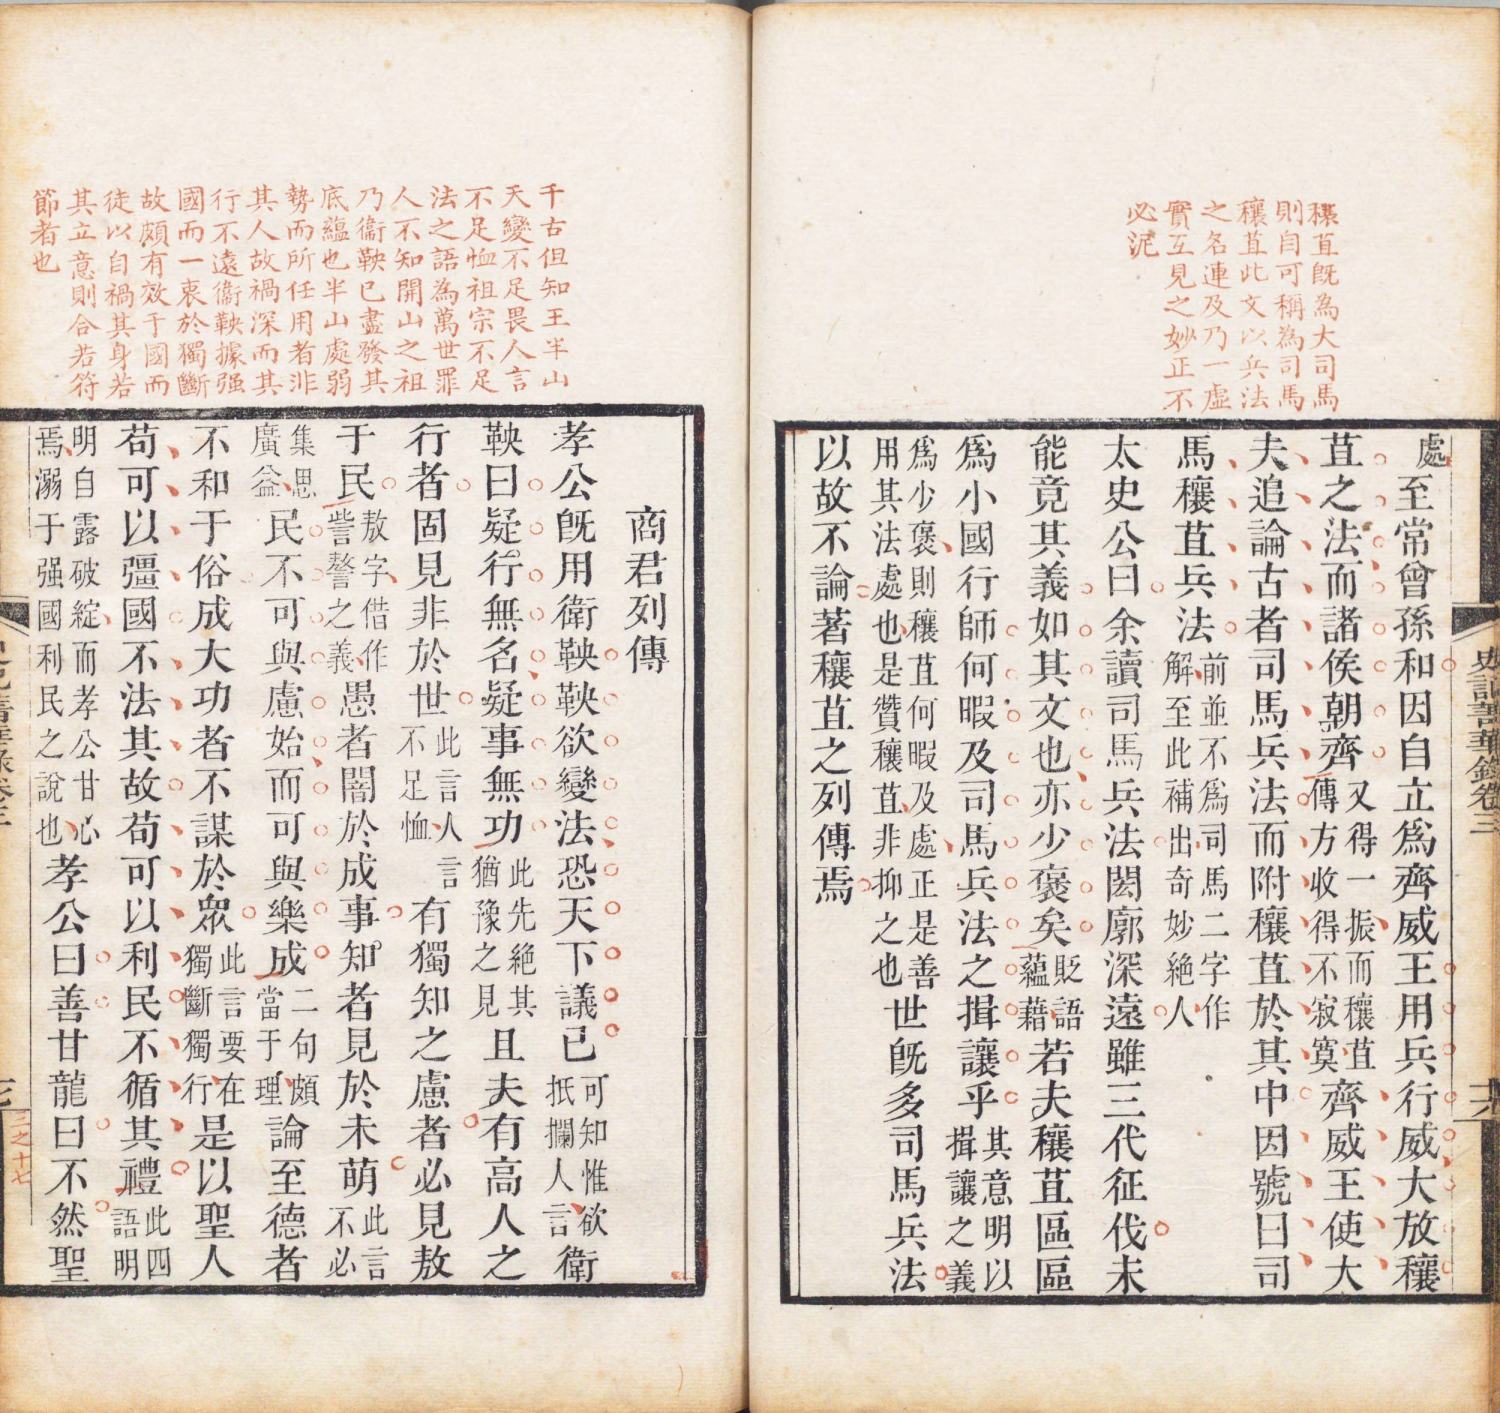 穰苴既為大司馬
則自可稱為司馬
穰苴此文以兵法
之名連及乃一虛
實互見之妙正不
必泥
處至常曾孫和因自立爲齊威王用兵行威大放穰
苴之法而諸侯朝齊又得一振而穰苴傳方收得不寂寞齊威王使大
夫追論古者司馬兵法而附穰苴於其中因號曰司
馬穰苴兵法前並不爲司馬二字作解至此補出奇妙絕人
太史公曰余讀司馬兵法閎廓深遠雖三代征伐未
能竟其義如其文也亦少褒矣貶語蘊藉若夫穰苴區區
爲小國行師何暇及司馬兵法之揖讓乎其意明以揖讓之義
爲少褒則穰苴何暇及處正是善用其法處也是贊穰苴非抑之也世旣多司馬兵法
以故不論著穰苴之列傳焉
史記菁華錄卷三
十六
千古但知王半山
天變不足畏人言
不足恤祖宗不足
法之語為萬世罪
人不知開山之祖
乃衞鞅已盡發其
底蘊也半山處弱
勢而所任用者非
其人故禍深而其
行不遠衞鞅據强
國而一衷於獨斷
故頗有效于國而
徒以自禍其身若
其立意則合若符
節者也
商君列傳
孝公旣用衛鞅鞅欲變法恐天下議己可知惟欲扺攔人言衛
鞅曰疑行無名疑事無功此先絕其猶豫之見且夫有高人之
行者固見非於世此言人言不足恤有獨知之慮者必見敖
于民敖字借作訾謷之義愚者闇於成事知者見於未萌此言不必
集思廣益民不可與慮始而可與樂成二句頗當于理論至德者
不和于俗成大功者不謀於眾此言要在獨斷獨行是以聖人
苟可以彊國不法其故苟可以利民不循其禮此四語明
明自露破綻而孝公甘心焉溺于强國利民之說也孝公曰善甘龍曰不然聖
三之十七